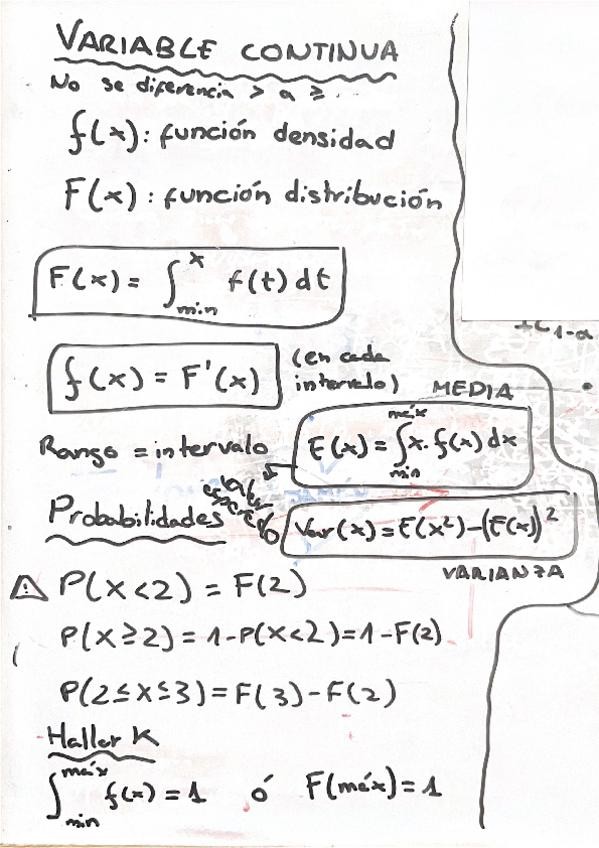 VARIABLE CONTINUA
No se diferencia > a ≥ ...
f(x): función densidad
F(x): función distribución
F(x) = ∫_{min}^{x} f(t) dt
f(x) = F'(x)
(en cada intervalo)
MEDIA
Rango = intervalo
E(x) = ∫_{min}^{máx} x. f(x) dx
valor esperado
Probabilidades
Var(x) = E(x²) - (E(x))²
VARIANZA
⚠ P(X<2) = F(2)
P(X≥2) = 1-P(X<2) = 1-F(2)
P(2≤X≤3) = F(3) - F(2)
Hallar K
∫_{min}^{máx} f(x) = 1 ó F(máx) = 1